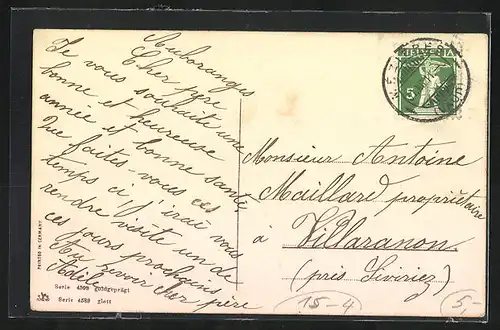 Auboranges
Cher père
Je vous souhaite une
bonne et heureuse
année et bonne santé.
Que faites-vous ces
temps ci j'irai vous
rendre visite un de
ces jours prochains
Au revoir cher père
Adèle
Monsieur Antoine
Maillard propriétaire
à Villaranon
(près Siviriez)
HELVETIA
5
PRINTED IN GERMANY
Serie 4599 goldgeprägt
Serie 4589 glatt
15-4
5,-